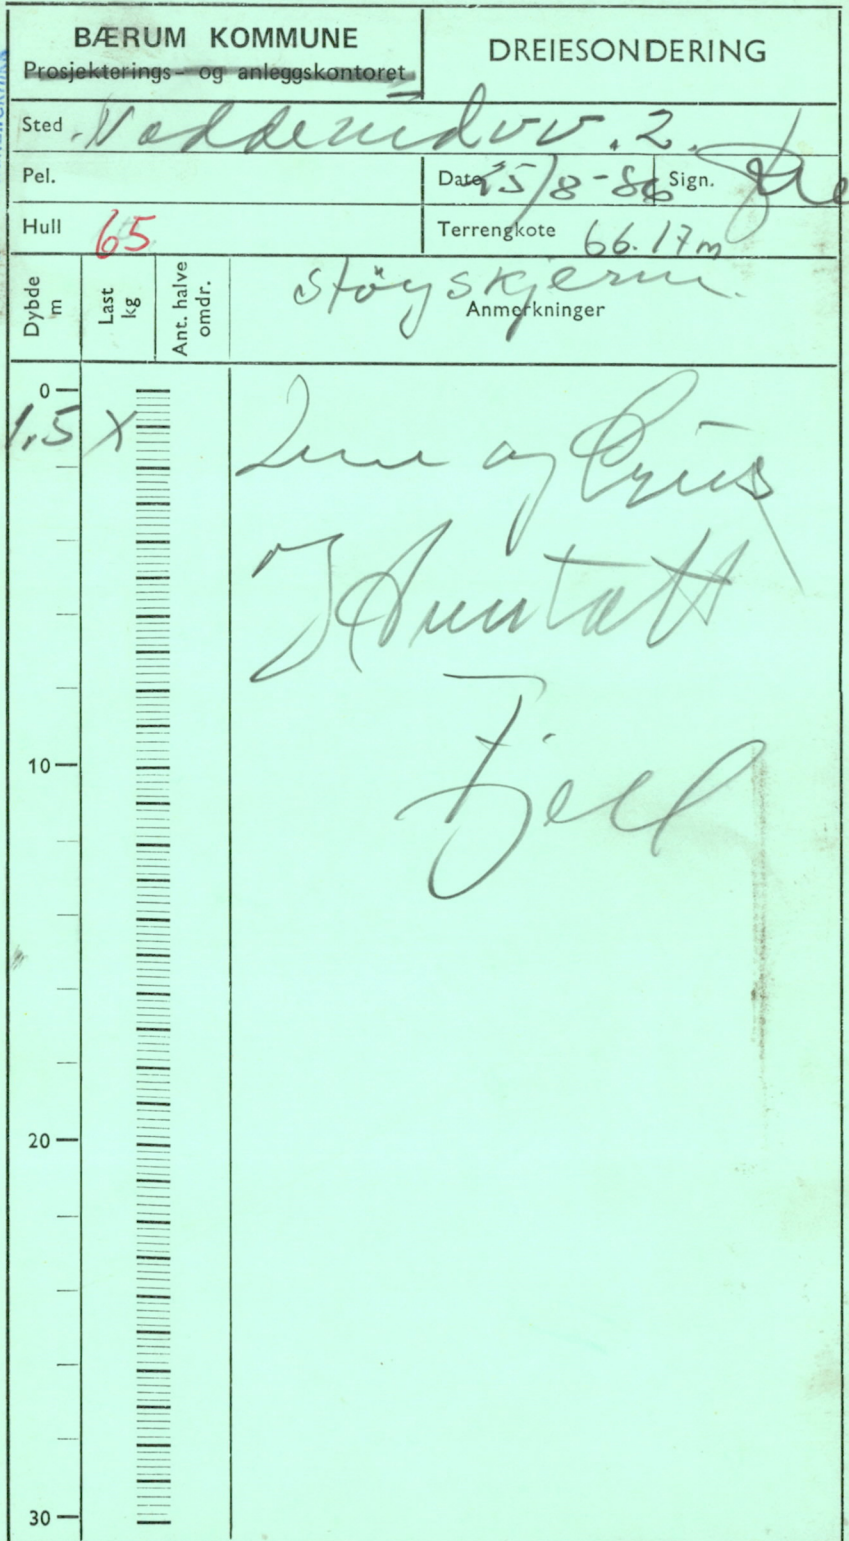 BÆRUM KOMMUNE
Prosjekterings- og anleggskontoret
DREIESONDERING
Sted Nadderudvv. 2.
Pel.
Dato 25/8-86 Sign.
Hull 65
Terrengkote 66.17m
Dybde m
Last kg
Ant. halve omdr.
Støyskjerm.
Anmerkninger
0
1,5 X
og Grus
Antatt
Fjell
10
20
30